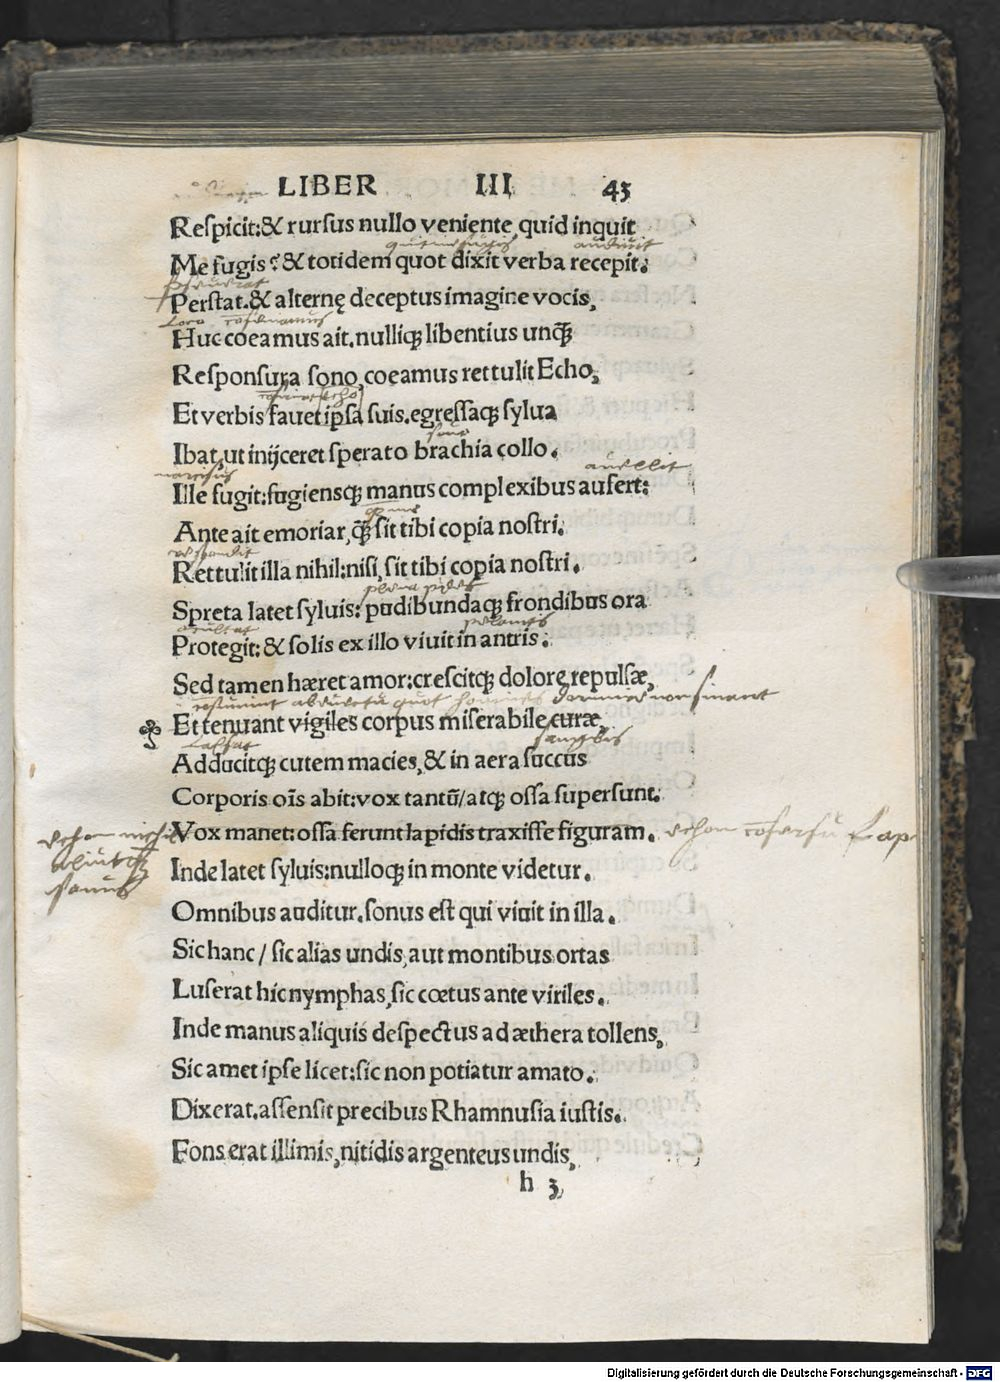 LIBER III 43
Respicit:& rursus nullo veniente,quid inquit
audiuit
Me fugis?& totidem quot dixit verba recepit.
Perstat.& alternę deceptus imagine vocis,
Loco
Huc coeamus ait.nulliqꝫ libentius unqᷓꝫ
Responsura sono,coeamus rettulit Echo,
echo
Et verbis fauet ipsa suis.egressaqꝫ sylua
Ibat,ut inijceret sperato brachia collo.
narcisus auellit
Ille fugit:fugiensqꝫ manus complexibus aufert:
Ante ait emoriar,qᷓꝫ sit tibi copia nostri.
respondit
Rettulit illa nihil:nisi,sit tibi copia nostri.
Spreta latet syluis:pudibundaqꝫ frondibus ora
Protegit:& solis ex illo viuit in antris.
Sed tamen hæret amor:crescitqꝫ dolore repulsæ,
homines dormire non sinant
Et tenuant vigiles corpus miserabile curæ,
sanguis
Adducitqꝫ cutem macies,& in aera succus
Corporis oīs abit:vox tantū/atqꝫ ossa supersunt.
Vox manet:ossa ferunt lapidis traxisse figuram.
Inde latet syluis:nulloqꝫ in monte videtur.
Omnibus auditur.sonus est qui viuit in illa.
Sic hanc/sic alias undis,aut montibus ortas
Luserat hic nymphas,sic cœtus ante viriles.
Inde manus aliquis despectus ad æthera tollens,
Sic amet ipse licet:sic non potiatur amato.
Dixerat.assensit precibus Rhamnusia iustis.
Fons erat illimis,nitidis argenteus undis,
h 3
Digitalisierung gefördert durch die Deutsche Forschungsgemeinschaft - DFG